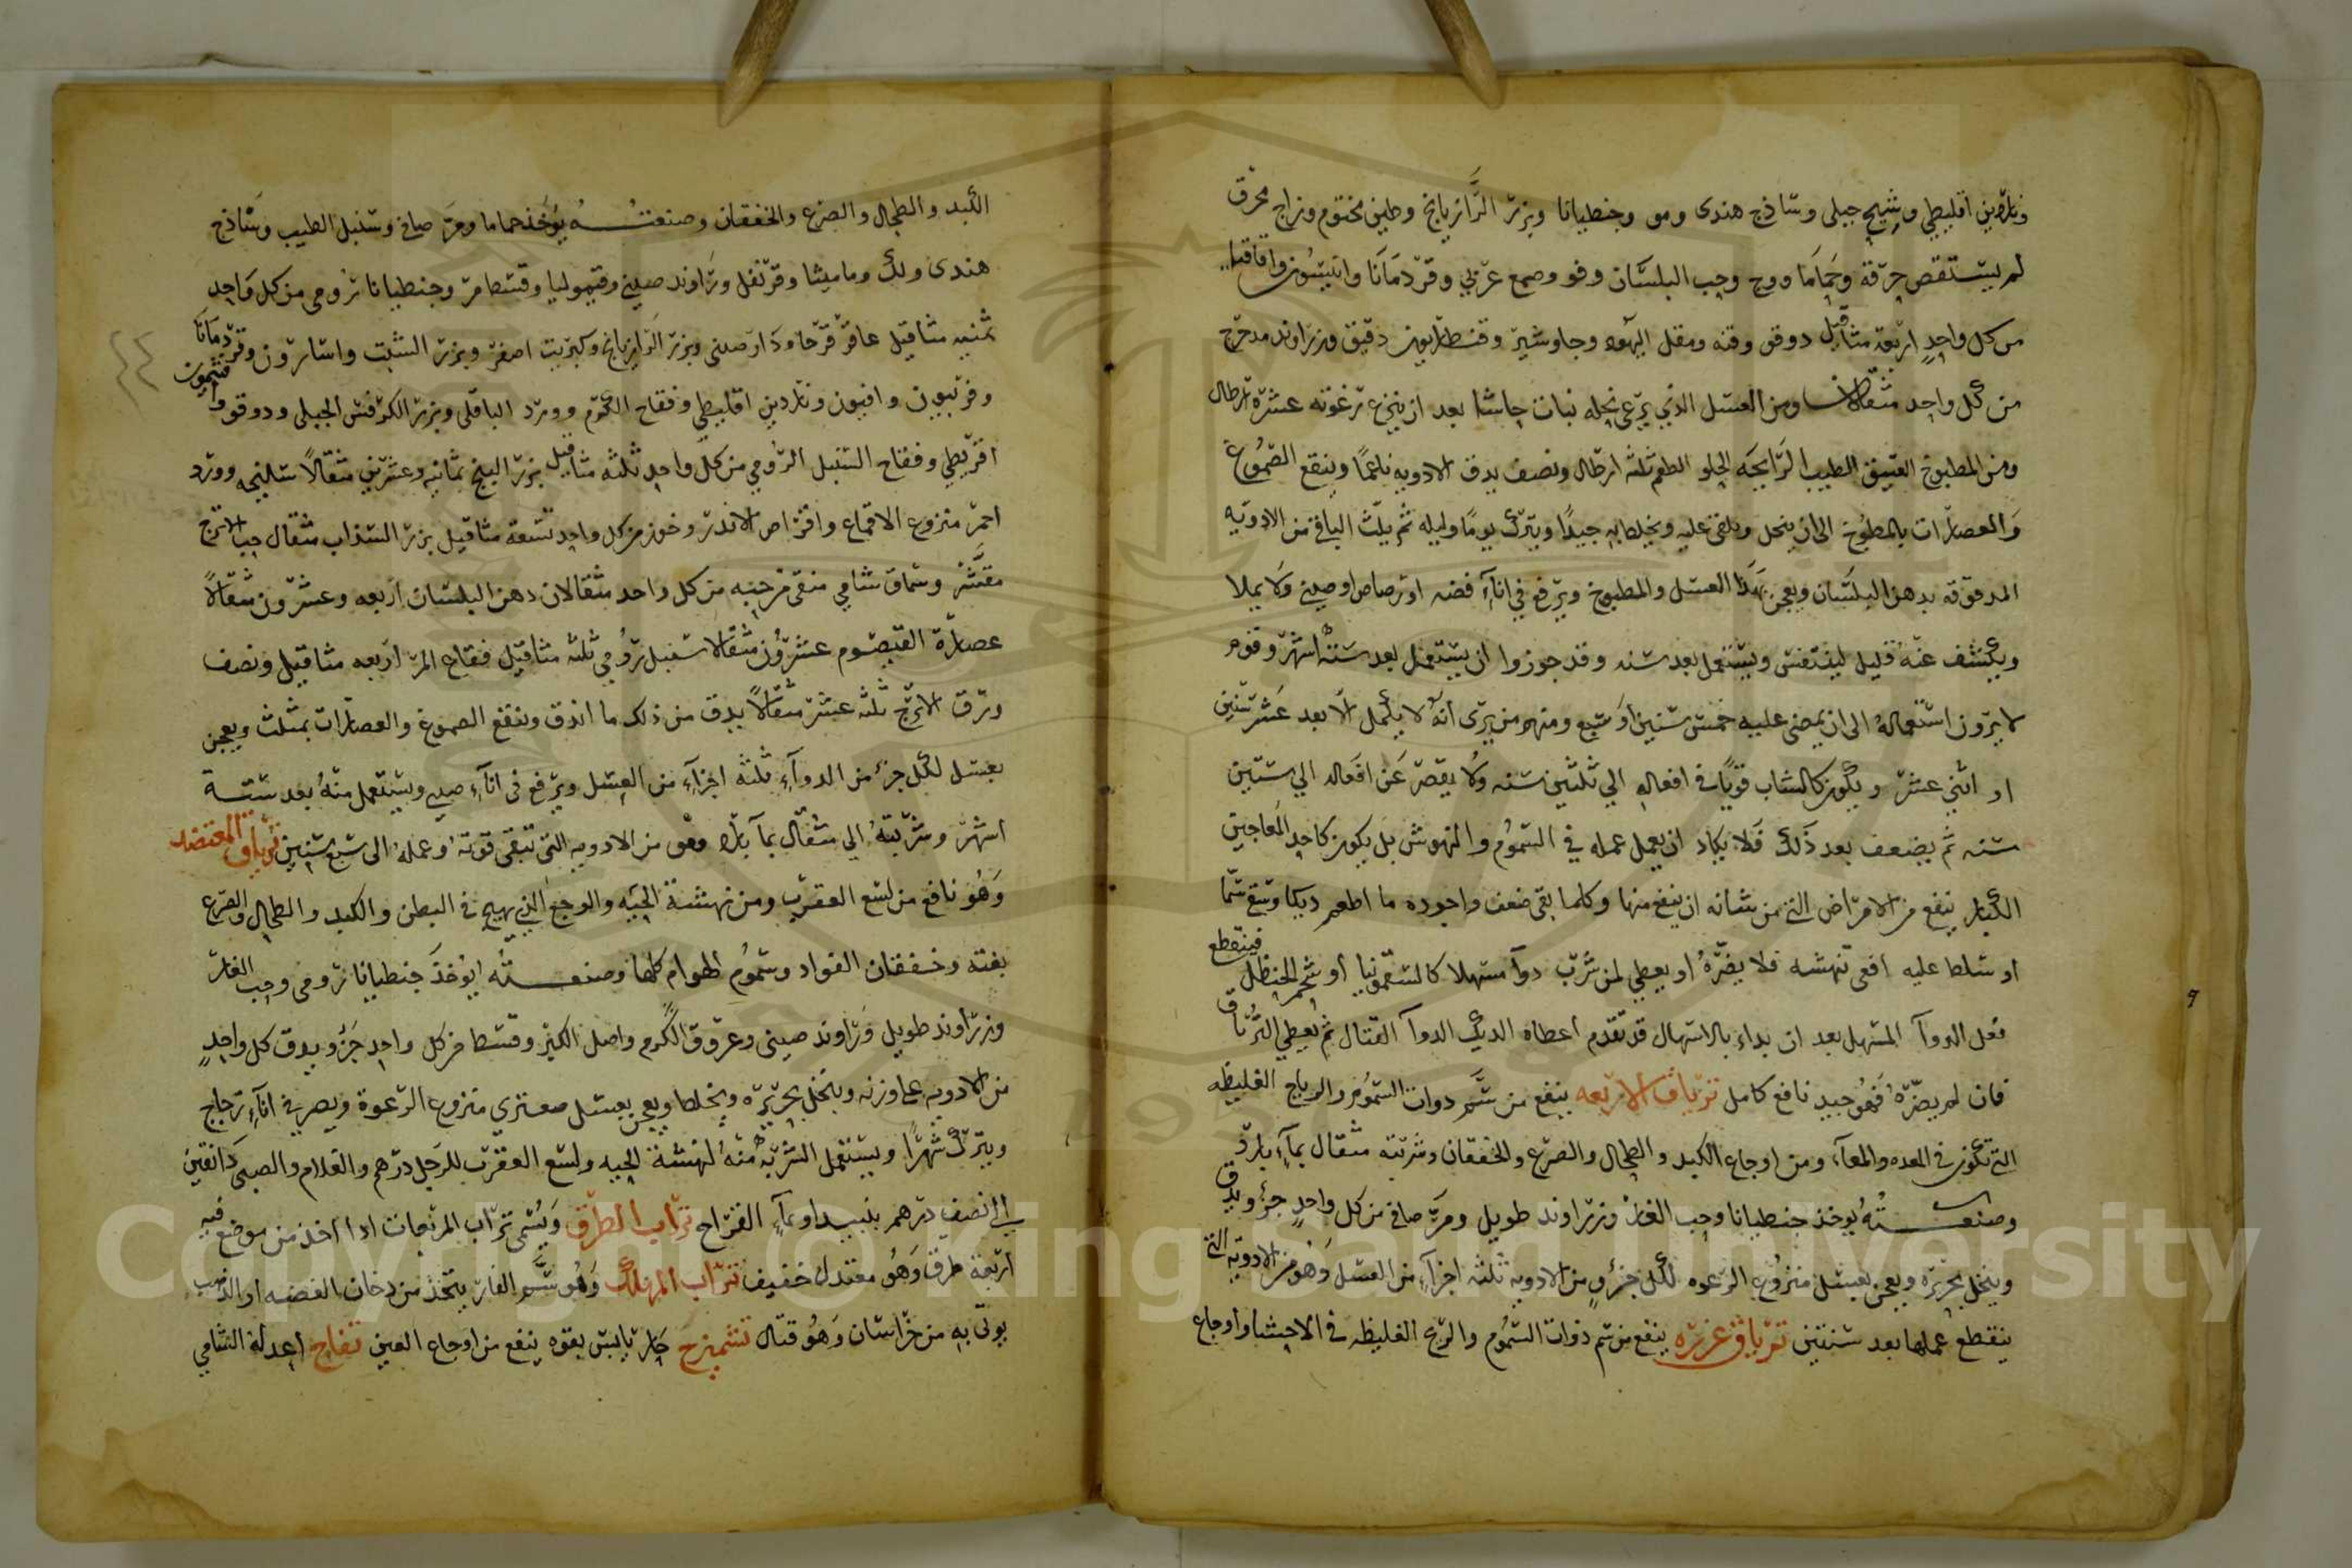 وناردين اقليطي وشيح جبلي وساذج هندى ومو وجنطيانا وبزر الرازيانج وطين مختوم وزاج محرق
لم يستقص حرقه وحماما ووج وحب البلسان وفو وصمغ عربي وقردمانا وانيسون واقاقيا
من كل واحد اربعة مثاقيل دوقو وقنه ومقل اليهود وجاوشير وقنطاريون دقيق وزراوند مدحرج
من كل واحد مثقالان ومن العسل الذي يرعى نحله نبات حاشا بعد ان ينزع رغوته عشرة ارطال
ومن المطبوخ العتيق الطيب الرايحه الحلو الطعم ثلثه ارطال ونصف يدق الادويه ناعمًا وينقع الصموغ
والعصارات بالمطبوخ الى ان ينحل ويلقى عليه ويخلط به جيدًا ويترك يومًا وليله ثم يلت الباقي من الادويه
المدقوقه بدهن البلسان ويعجن بهذا العسل والمطبوخ ويرفع في اناء فضه او رصاص او صيني ولا يملا
ويكشف عنه قليل ليتنفس ويستعمل بعد سنه وقد جوزوا ان يستعمل بعد ستة اشهر وقوم
لا يرون استعماله الى ان يمضى عليه خمس سنين او سبع ومنهم من يرى انه لا يكمل الا بعد عشر سنين
او اثني عشر ويكون كالشاب قويًا في افعاله الي ثلثين سنه ولا يقصر عن افعاله الي ستين
سنه ثم يضعف بعد ذلك فلا يكاد ان يعمل عمله في السموم والنهوش بل يكون كاحد المعاجين
الكبار ينفع من الامراض التي من شانه ان ينفع منها وكلما بقى ضعف واجوده ما اطعم ديكا وسقي سمًا
او سلط عليه افعى تنهشه فلا يضره او يعطي لمن شرب دوآ مسهلا كالسقمونيا او شحم الحنظل فينقطع
فعل الدوآ المسهل بعد ان بداء بالاسهال قد تقدم اعطاه الديك الدوآ القتال ثم يعطي الترياق
فان لم يضره فهو جيد نافع كامل ترياق الاربعه ينفع من سم ذوات السموم والرياح الغليظه
التي تكون في المعده والمعاء ومن اوجاع الكبد والطحال والصرع والخفقان وشربته مثقال بماء بارد
وصنعته يوخذ جنطيانا وحب الغار وزراوند طويل ومر صافي من كل واحد جزء ويدق
وينخل بحريره ويعجن بعسل منزوع الرغوه لكل جزء من الادويه ثلثه اجزاء من العسل وهو من الادويه التي
ينقطع عملها بعد سنتين ترياق عزره ينفع من سم ذوات السموم والريح الغليظه في الاحشا واوجاع
الكبد والطحال والصرع والخفقان وصنعته يوخذ حماما ومر صافي وسنبل الطيب وساذج
هندى ولك وماميثا وقرنفل وراوند صيني وقيموليا وقسط مر وجنطيانا رومى من كل واحد
ثمنيه مثاقيل عاقر قرحا ودارصينى وبزر الرازيانج وكبريت اصفر وبزر الشبت واسارون وقردمانا
وفربيون وافيون وناردين اقليطي وفقاح الكرم وورد الباقلى وبزر الكرفس الجبلى ودوقو وافتيمون
اقريطي وفقاح السنبل الرومي من كل واحد ثلثه مثاقيل بزر البنج ثمانيه وعشرين مثقالًا سليخه وورد
احمر منزوع الاقماع واقراص الاندر وخوز من كل واحد تسعة مثاقيل بزر السذاب مثقال حب الاترج
مقشر وسماق شامي منقى من حبه من كل واحد مثقالان دهن البلسان اربعه وعشرون مثقالًا
عصارة القيصوم عشرون مثقالا سنبل رومي ثلثه مثاقيل فقاح المر اربعه مثاقيل ونصف
ورق الاترج ثلثه عشر مثقالًا يدق من ذلك ما اندق وينقع الصموغ والعصارات بمثلث ويعجن
بعسل لكل جزء من الدواء ثلثه اجزاء من العسل ويرفع في اناء صيني ويستعمل منه بعد ستة
اشهر وشربته الي مثقال بماء بارد وهو من الادويه التي تبقى قوته وعمله الى سبع سنين ترياق المعتضد
وهو نافع من لسع العقرب ومن نهشة الحيه والوجع الذي يهيج في البطن والكبد والطحال والصرع
بغته وخفقان الفواد وسموم الهوام كلها وصنعته ايؤخذ جنطيانا رومى وحب الغار
وزراوند طويل وراوند صينى وعروق الكرم واصل الكبر وقسط من كل واحد جزء ويدق كل واحد
من الادويه على وزنه وينخل بحريره ويخلط ويعجن بعسل صعترى منزوع الرغوة ويصير في اناء زجاج
ويترك شهرًا ويستعمل الشربه منه لنهشة الحيه ولسع العقرب للرجل درهم والغلام والصبى دانقين
الى نصف درهم بنبيد او بماء القراح تراب الطرق ويسمى تراب المربعات اذا اخذ من موضع فيه
اربعة طرق وهو معتدل خفيف تراب الهالك وهو سم الفار يتخذ من دخان الفضه او الذهب
يوتى به من خراسان وهو قتال تشميزج حار يابس بقوه ينفع من اوجاع العين تفاح اعدله الشامي
٤٤
Copyright © King Saud University